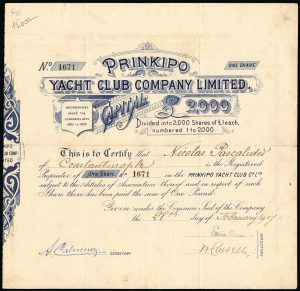 40
15,000
PRINKIPO
No. 1671
ONE SHARE
YACHT CLUB COMPANY LIMITED.
INCORPORATED
UNDER THE
COMPANIES ACTS
1862 TO 1900
CAPITAL £ 2,000
Divided into 2,000 Shares of £1 each,
numbered 1 to 2000.
This is to Certify that Nicolas Pascalides
of Constantinople is the Registered
Proprietor of One Share No. 1671 in the PRINKIPO YACHT CLUB Co Ltd
subject to the Articles of Association thereof and in respect of such
Share there has been paid the sum of One Pound.
Given under the Common Seal of the Company
the 28th day of February 1907
SECRETARY
DIRECTORS